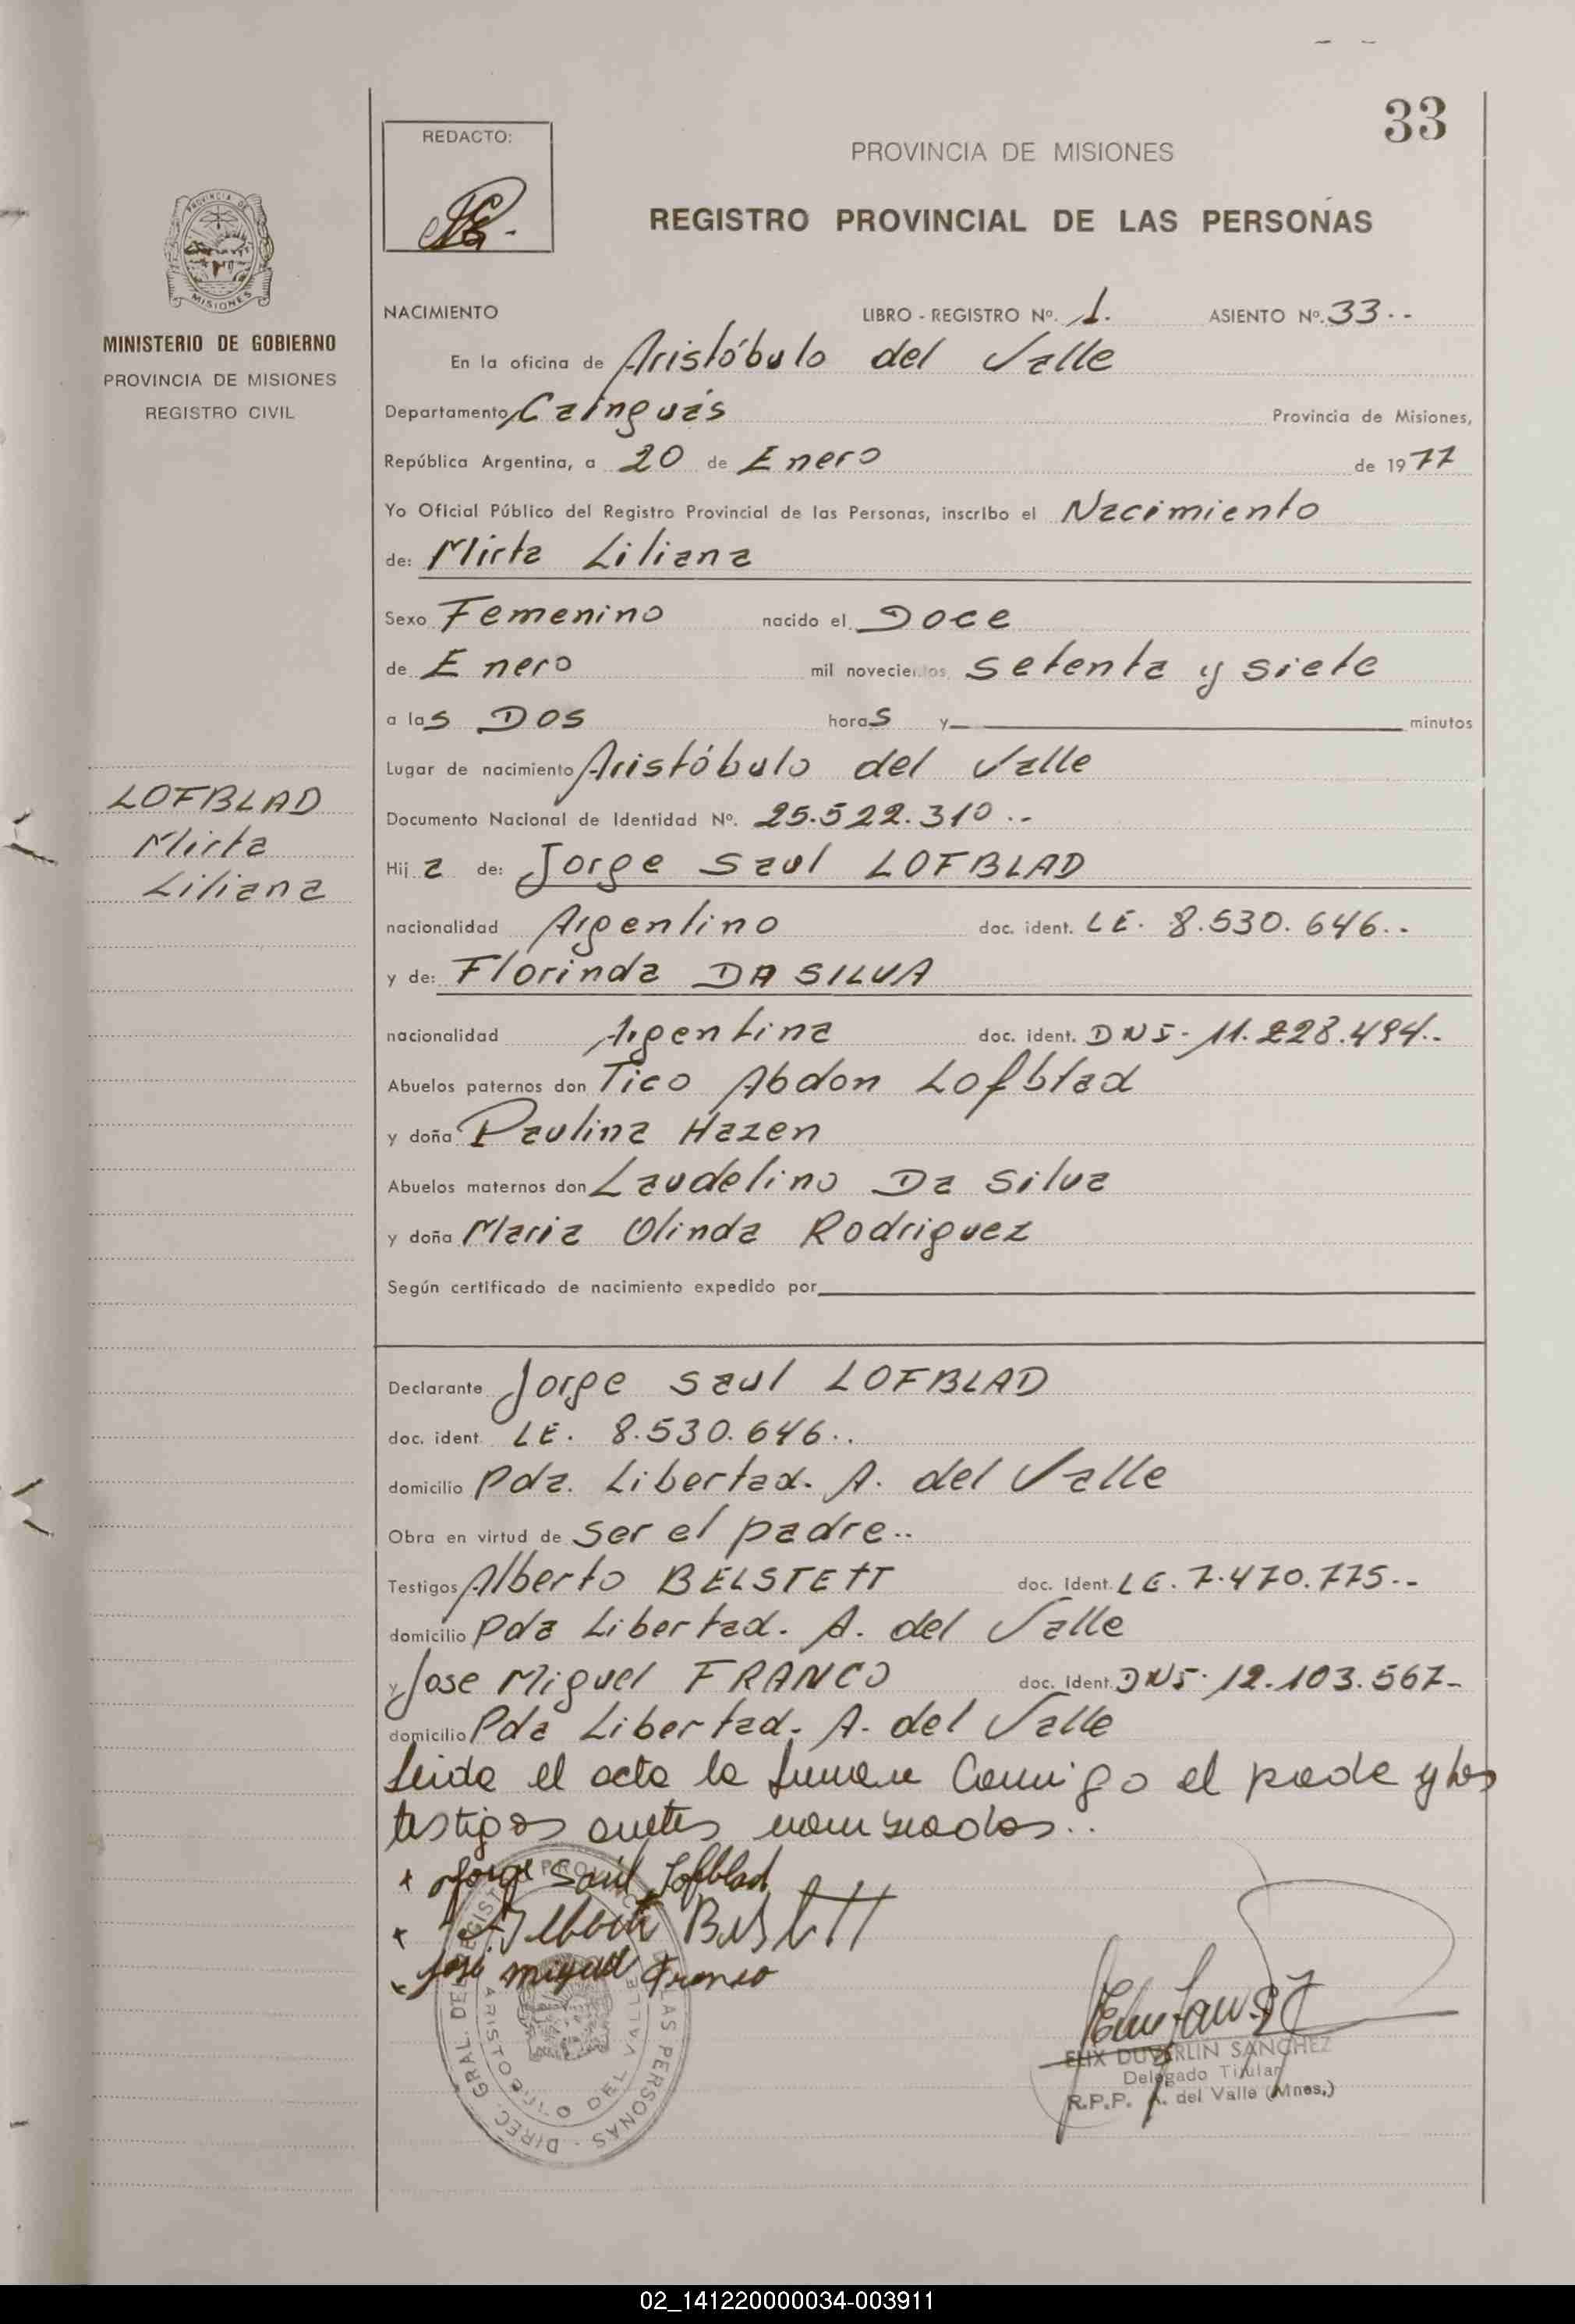 33
REDACTO:
PROVINCIA DE MISIONES
REGISTRO PROVINCIAL DE LAS PERSONAS
PROVINCIA DE
MISIONES
MINISTERIO DE GOBIERNO
PROVINCIA DE MISIONES
REGISTRO CIVIL
NACIMIENTO LIBRO - REGISTRO Nº. 1. ASIENTO Nº. 33.--
En la oficina de Aristóbulo del Valle
Departamento Cainguás Provincia de Misiones,
República Argentina, a 20 de Enero de 1977
Yo Oficial Público del Registro Provincial de las Personas, inscribo el Nacimiento
de: Mirta Liliana
Sexo Femenino nacido el Doce
de Enero mil novecientos setenta y siete
a las DOS horas y minutos
Lugar de nacimiento Aristóbulo del Valle
LOFBLAD
Mirta
Liliana
Documento Nacional de Identidad Nº. 25.522.310.--
Hija de: Jorge Saul LOFBLAD
nacionalidad Argentino doc. ident. LE. 8.530.646..
y de: Florinda DA SILVA
nacionalidad Argentina doc. ident. DNI- 11.228.494.-
Abuelos paternos don Tico Abdon Lofblad
y doña Paulina Hazen
Abuelos maternos don Laudelino Da Silva
y doña Maria Olinda Rodriguez
Según certificado de nacimiento expedido por
Declarante Jorge Saul LOFBLAD
doc. ident. LE. 8.530.646..
domicilio Pda. Libertad. A. del Valle
Obra en virtud de ser el padre..
Testigos Alberto BELSTETT doc. Ident. LE. 7.470.775.--
domicilio Pda Libertad. A. del Valle
y Jose Miguel FRANCO doc. Ident. DNI- 12.103.567-
domicilio Pda Libertad. A. del Valle
Leida el acta la firman Conmigo el padre y los
testigos antes nombrados..
Jorge Saúl Lofblad
Alberto Belstett
José Miguel Franco
DIREC. GRAL. DEL REGISTRO PROVINCIAL DE LAS PERSONAS
ARISTOBULO DEL VALLE
ELIX DUVERLIN SANCHEZ
Delegado Titular
R.P.P. A. del Valle (Mnes.)
02_141220000034-003911